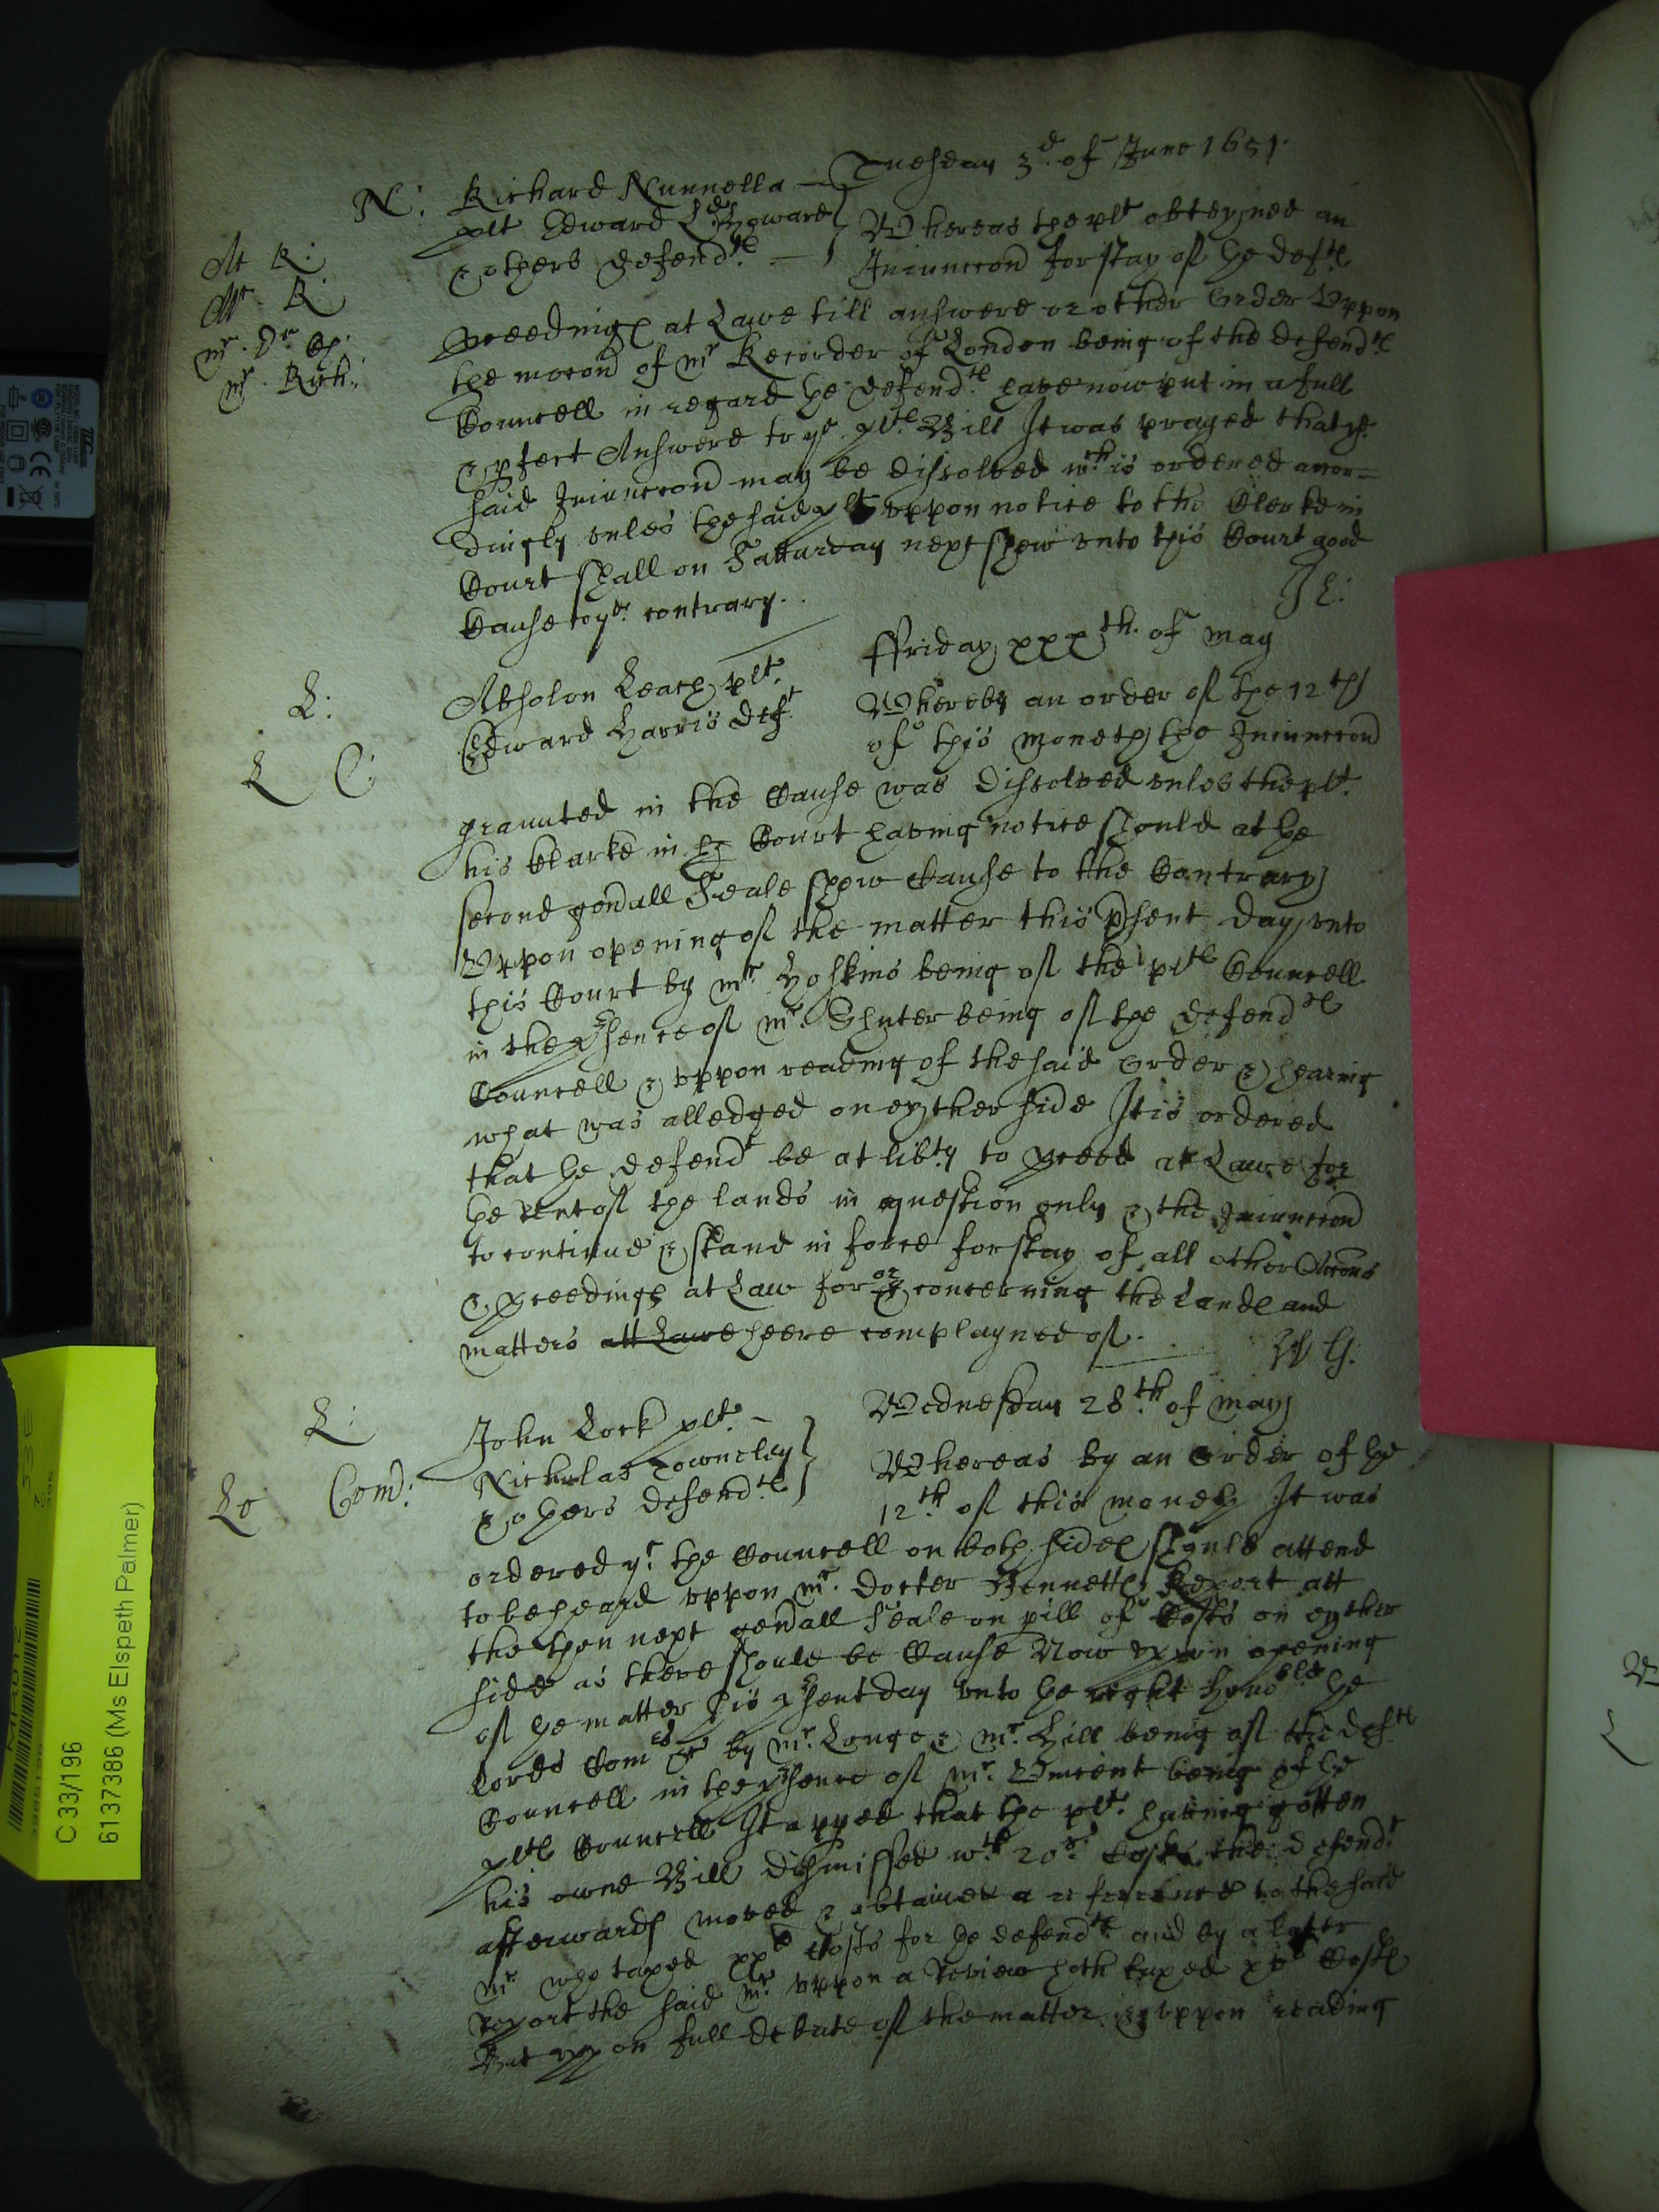 Tuesday 3d. of June 1651.
N: Richard Nunnella
plt Edward Ld Howard
& others defendts.
Whereas the plt obteyned an
Iniunccon for stay of the defts
At R:
Mr. R
mr. Dr. Ep.
mr. Rich:
proceedings at Lawe till answere or other Order Uppon
the mocon of mr Recorder of London being of the defendts
Councell in regard the defendts have now put in a full
& pfect Answere to ye plts Bill It was prayed that ye
said Iniunccon may be dissolved wch is ordered accor=
dingly unles the said plt uppon notice to the Clerke in
Court shall on Satturday next shew unto this Court good
Cause to ye contrary.
J L:
ffriday xxxth. of may
L:
Absolon Leach plt.
Edward Harris deft
L C:
Whereby an order of the 12th
of this moneth the Iniunccon
graunted in the Cause was dissolved unles the plt.
his Clarke in Court having notice should at the
second genall Seale shew Cause to the Contrary
Uppon opening of the matter this psent day unto
this Court by mr. Hoskins being of the plts Councell
in the psence of mr. Shuter being of the defendts
Councell & uppon reading of the said Order & hearing
what was alledged on eyther side It is ordered
that the defendt be at libty to pceed at Lawe for
the rent of the lands in question only & the Iniunccon
to continue & stand in force for stay of all other Accons
& pceedings at Law for or concerning the Lands and
matters att Lawe heere complayned of.
Wednesday 28th. of may
L:
John Lock plt.
Nicholas Towneley
& others defendts
Lo Com:
Whereas by an Order of the
12th of this moneth It was
ordered yt. the Councell on both sides should attend
to be heard uppon mr. Docter Bennetts Report att
the then next genall Seale on pill of Costs on eyther
side as there should be Cause Now uppon opening
of the matter this psent day unto the right honoble the
Lords Comrs by mr. Longe & mr. Hill being of the defts
Councell in the psence of mr. Vincent being of the
plts Councell It appred that the plt. having gotten
his owne Bill dismissed wth 20s. Costs the defendt
afterwards moved & obtained a reference to the said
mr. who taxed xxl Costs for the defendts. and by a later
report the said mr. uppon a Review hath taxed xvl Costs
But uppon full debate of the matter & uppon reading
C 33/196
6137386 (Ms Elspeth Palmer)